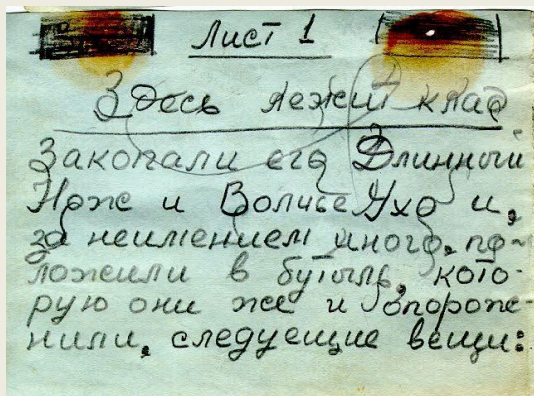 Лист 1
Здесь лежит клад
Закопали его Длинный
Нож и Волчье Ухо и,
за неимением иного, по-
ложили в бутыль, кото-
рую они же и опорож-
нили, следующие вещи: